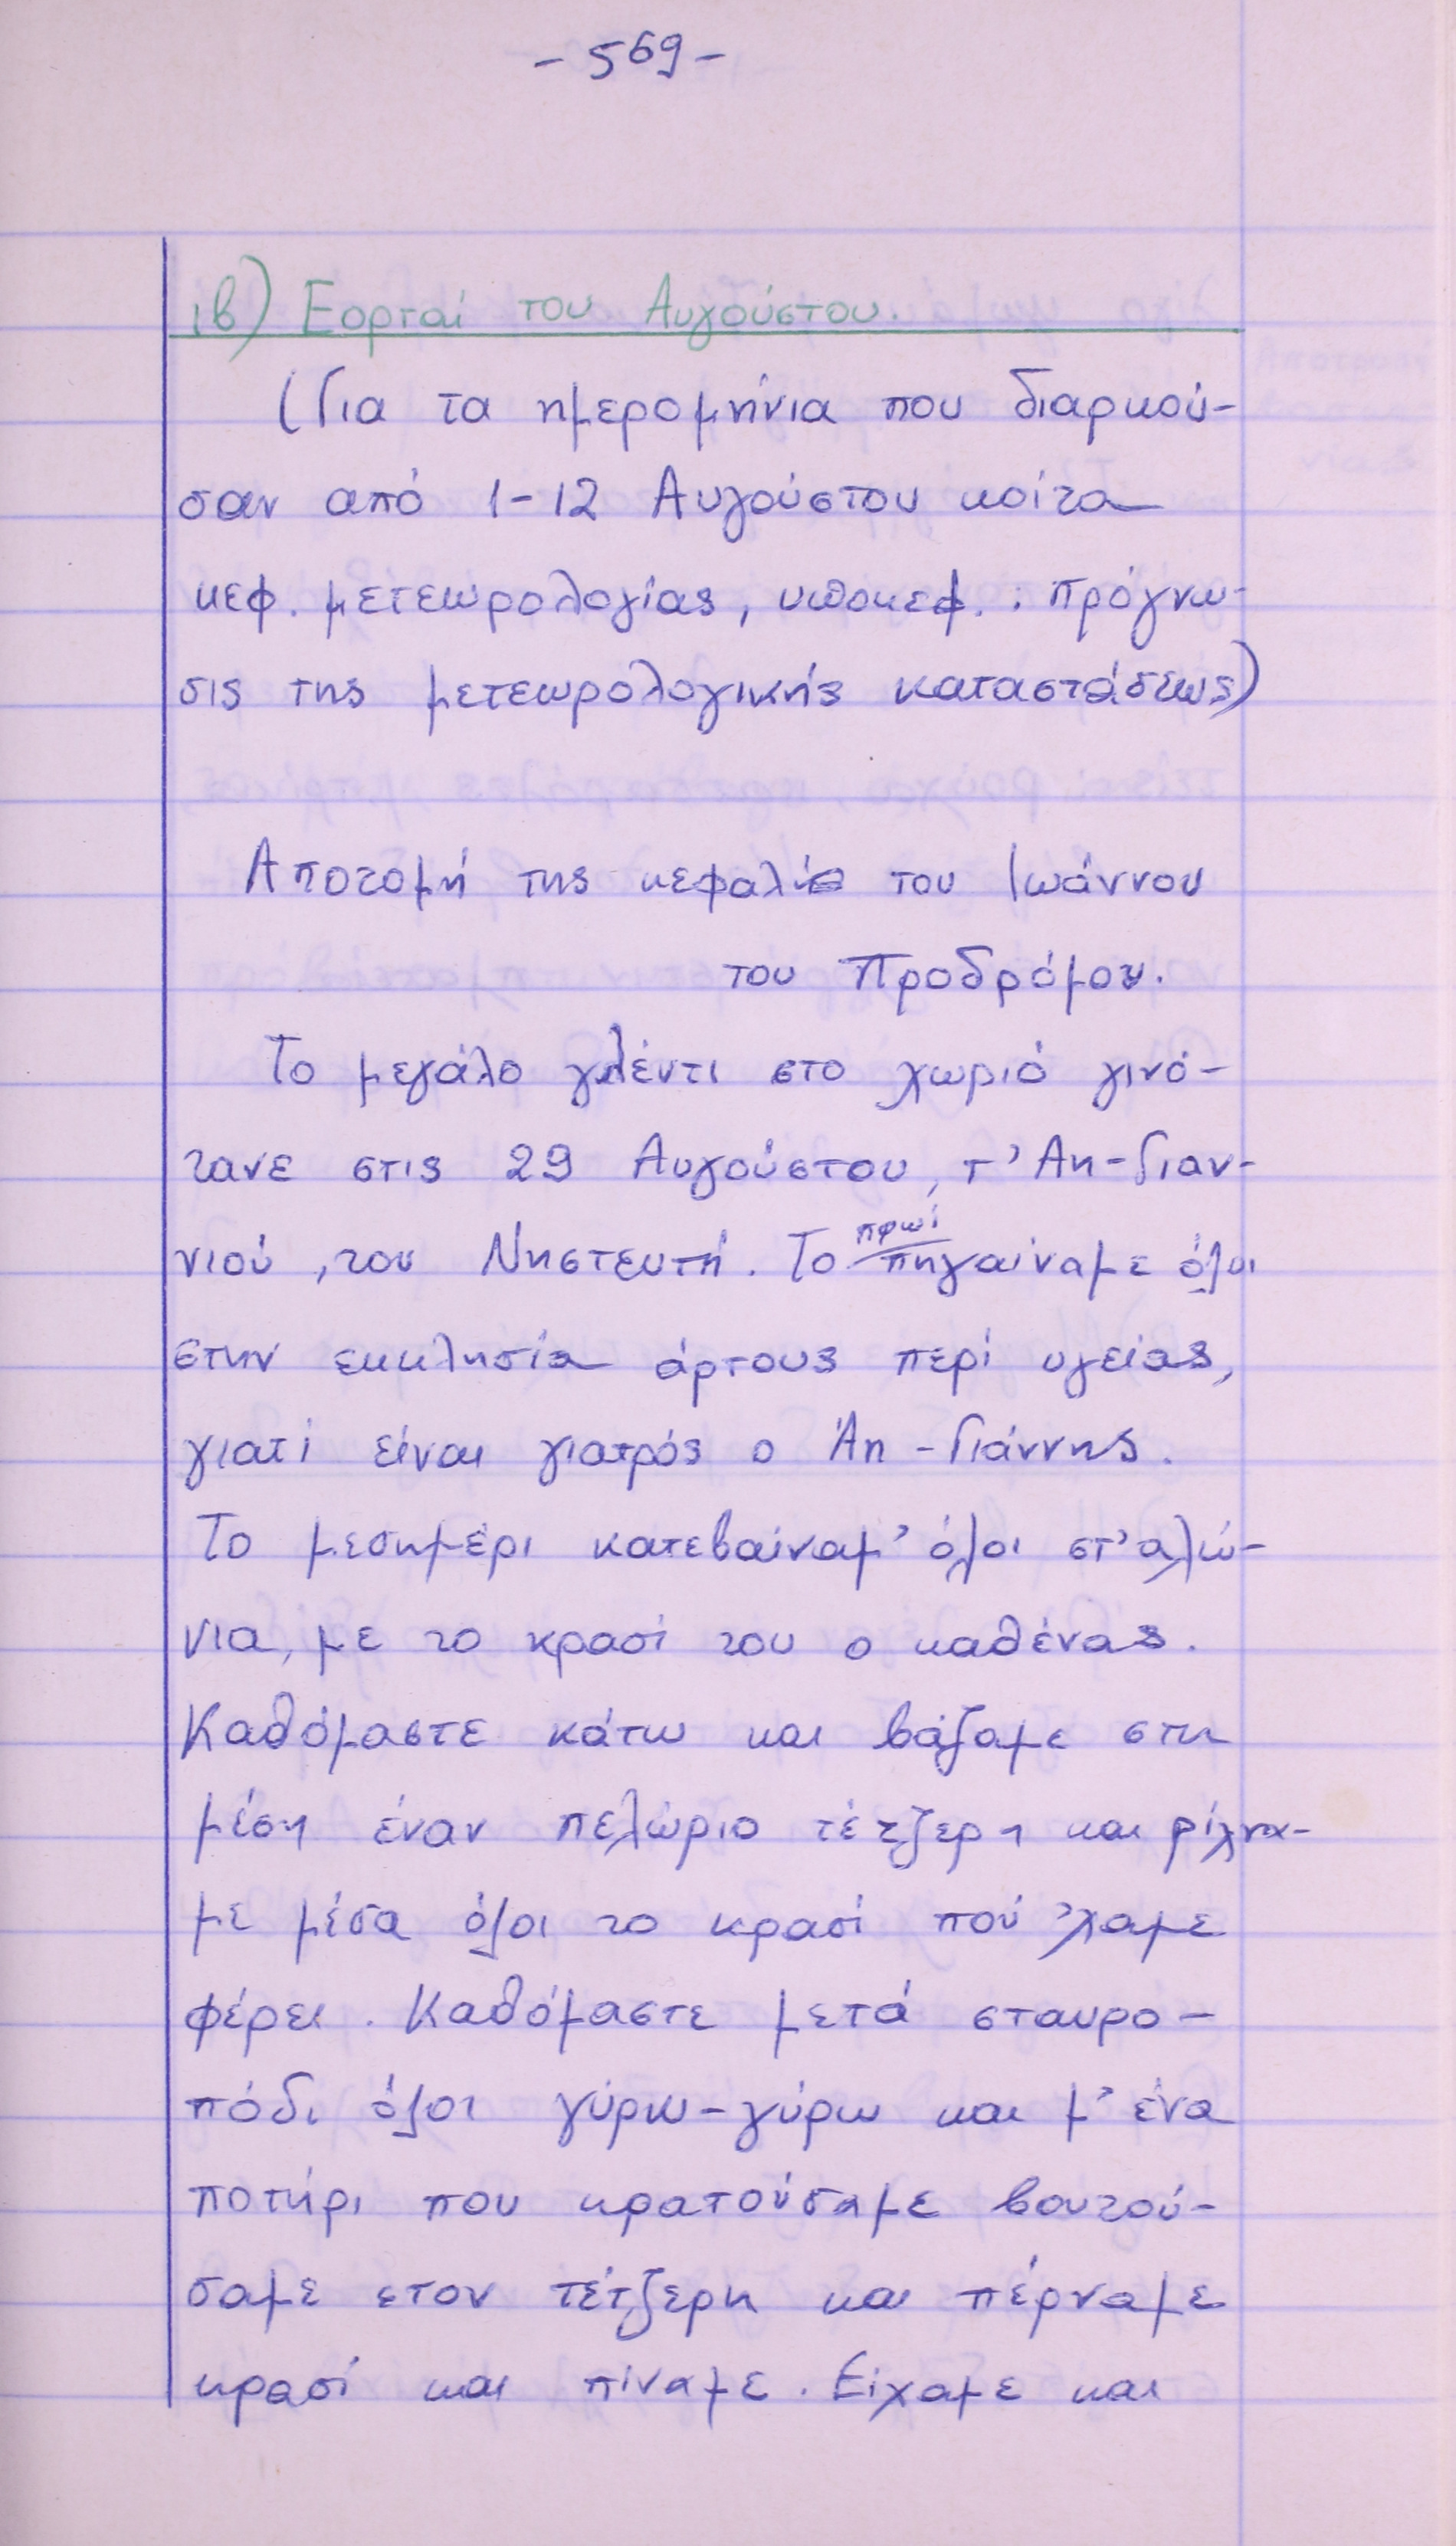 - 569 -
ιβ) Εορταί του Αυγούστου.
(Για τα ημερομήνια που διαρκού-
σαν από 1-12 Αυγούστου κοίτα
κεφ. μετεωρολογίας, υποκεφ. : πρόγνω-
σις της μετεωρολογικής καταστάσεως)
Αποτομή της κεφαλής του Ιωάννου
του Προδρόμου.
Το μεγάλο γλέντι στο χωριό γινό-
τανε στις 29 Αυγούστου, τ' Αη-Γιαν-
νιού, του Νηστευτή. Το πρωί πηγαίναμε όλοι
στην εκκλησία άρτους περί υγείας,
γιατί είναι γιατρός ο Άη-Γιάννης.
Το μεσημέρι κατεβαίναμ' όλοι στ' αλώ-
νια, με το κρασί του ο καθένας.
Καθόμαστε κάτω και βάζαμε στη
μέση έναν πελώριο τέτζερη και ρίχνα-
με μέσα όλοι το κρασί πού 'χαμε
φέρει. Καθόμαστε μετά σταυρο-
πόδι όλοι γύρω-γύρω και μ' ένα
ποτήρι που κρατούσαμε βουτού-
σαμε στον τέτζερη και πέρναμε
κρασί και πίναμε. Είχαμε και